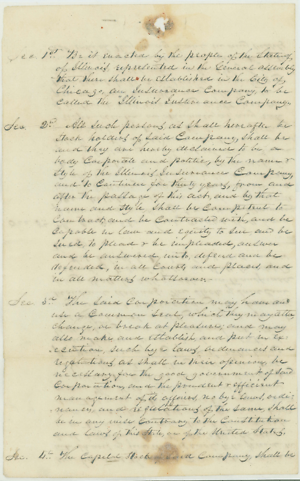 Sec. 1st. Be it enacted by the people of the State
of Illinois, represented in the General Assembly
that there shall be established in the City of
Chicago, an Insurance Company to be
called the Illinois Insurance Company.
Sec. 2d. All such persons as shall hereafter be
Stock holders of said Company, shall be
and they are hereby declared to be a
body Corporate and politic, by the name &
Style of the Illinois Insurance Company
and to Continue for thirty years, from and
after the passage of this Act, and by that
name and Style shall be Competent to
Contract and be Contracted with, and be
Capable in law and equity to sue and be
Sued, to plead & be impleaded, answer
and be answered unto, defend and be
defended, in all Courts and places and
in all matters whatsoever.
Sec 3d. The Said Corporation may have and
use a Common Seal, which they may alter
change, or break at pleasure, and may
also make and establish and put in ex-
ecution, such bye laws, ordinances and
regulations as shall in their opinion, be
necessary for the good government of said
Corporation, and the prudent & efficient
management of its affairs, no bye laws, ordi-
nances, and regulations of the same shall
be in any wise Contrary to the Constitution
and laws of this State, or of the United States.
Sec. 4th. The Capital Stock of said Company, shall be